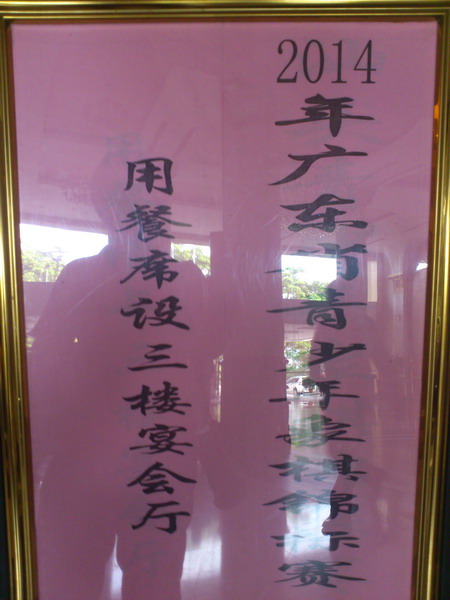 2014年广东省青少年象棋锦标赛
用餐席设三楼宴会厅